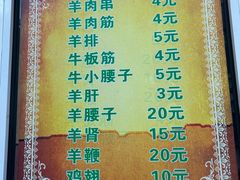 羊肉串 4元
羊肉筋 4元
羊排 5元
牛板筋 4元
牛小腰子 5元
羊肝 3元
羊腰子 20元
羊肾 15元
羊鞭 20元
鸡翅 10元